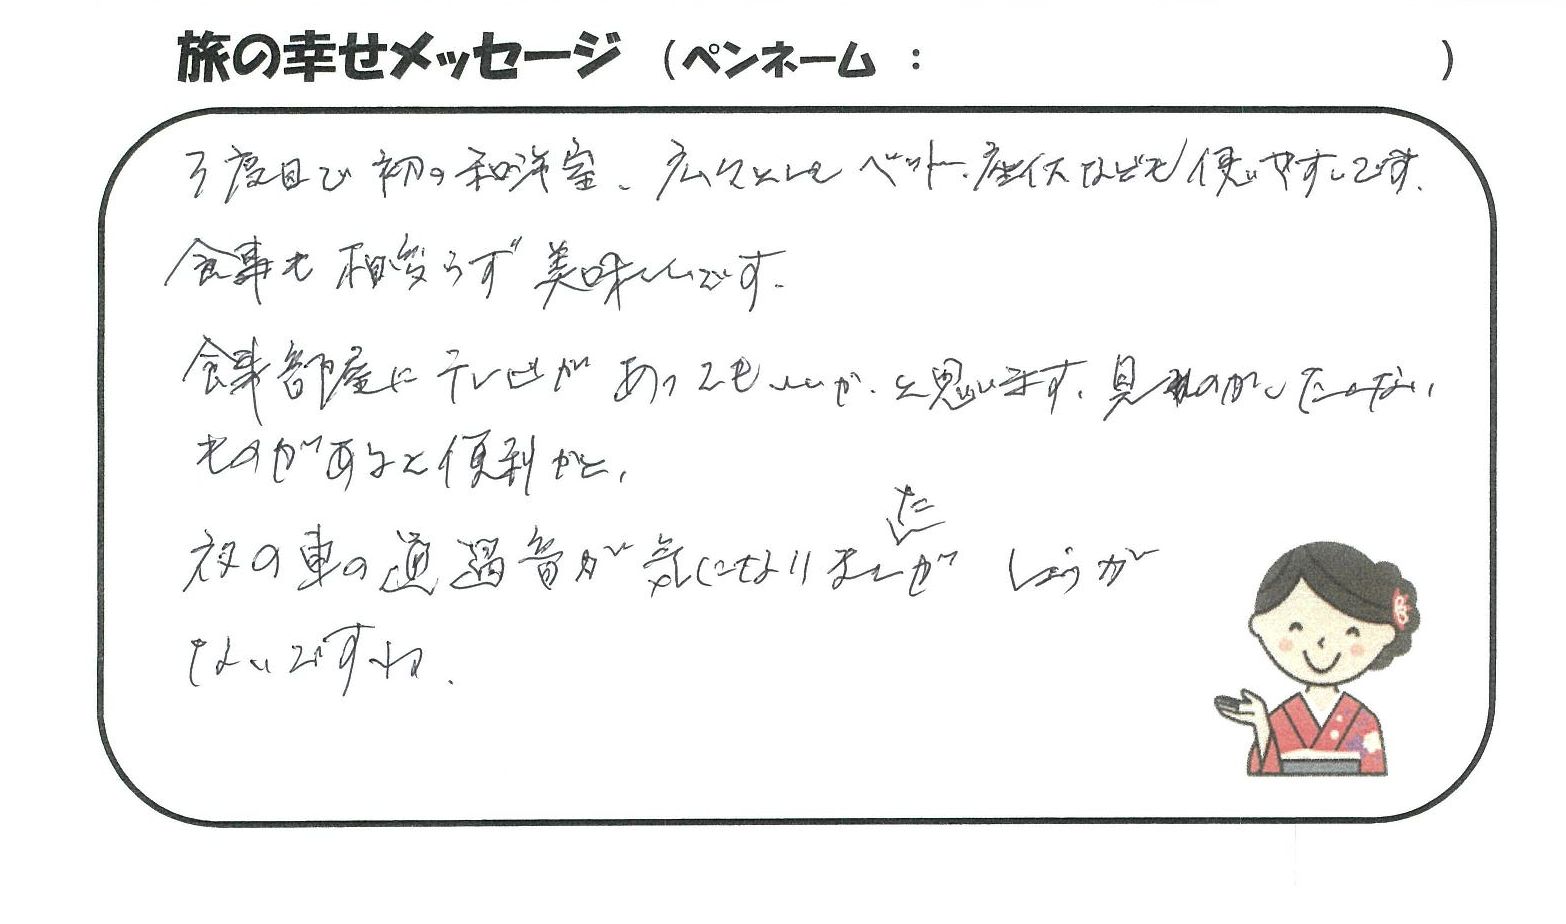 旅の幸せメッセージ (ペンネーム : )
3度目で初の和洋室、広々としてベット、座イスなども使いやすいです。
食事も相変らず美味しいです。
食事部屋にテレビがあってもいいか、と思います。見のがしたくない
ものがあると便利かと、
夜の車の通過音が気になりましたが しょうが
ないですね.